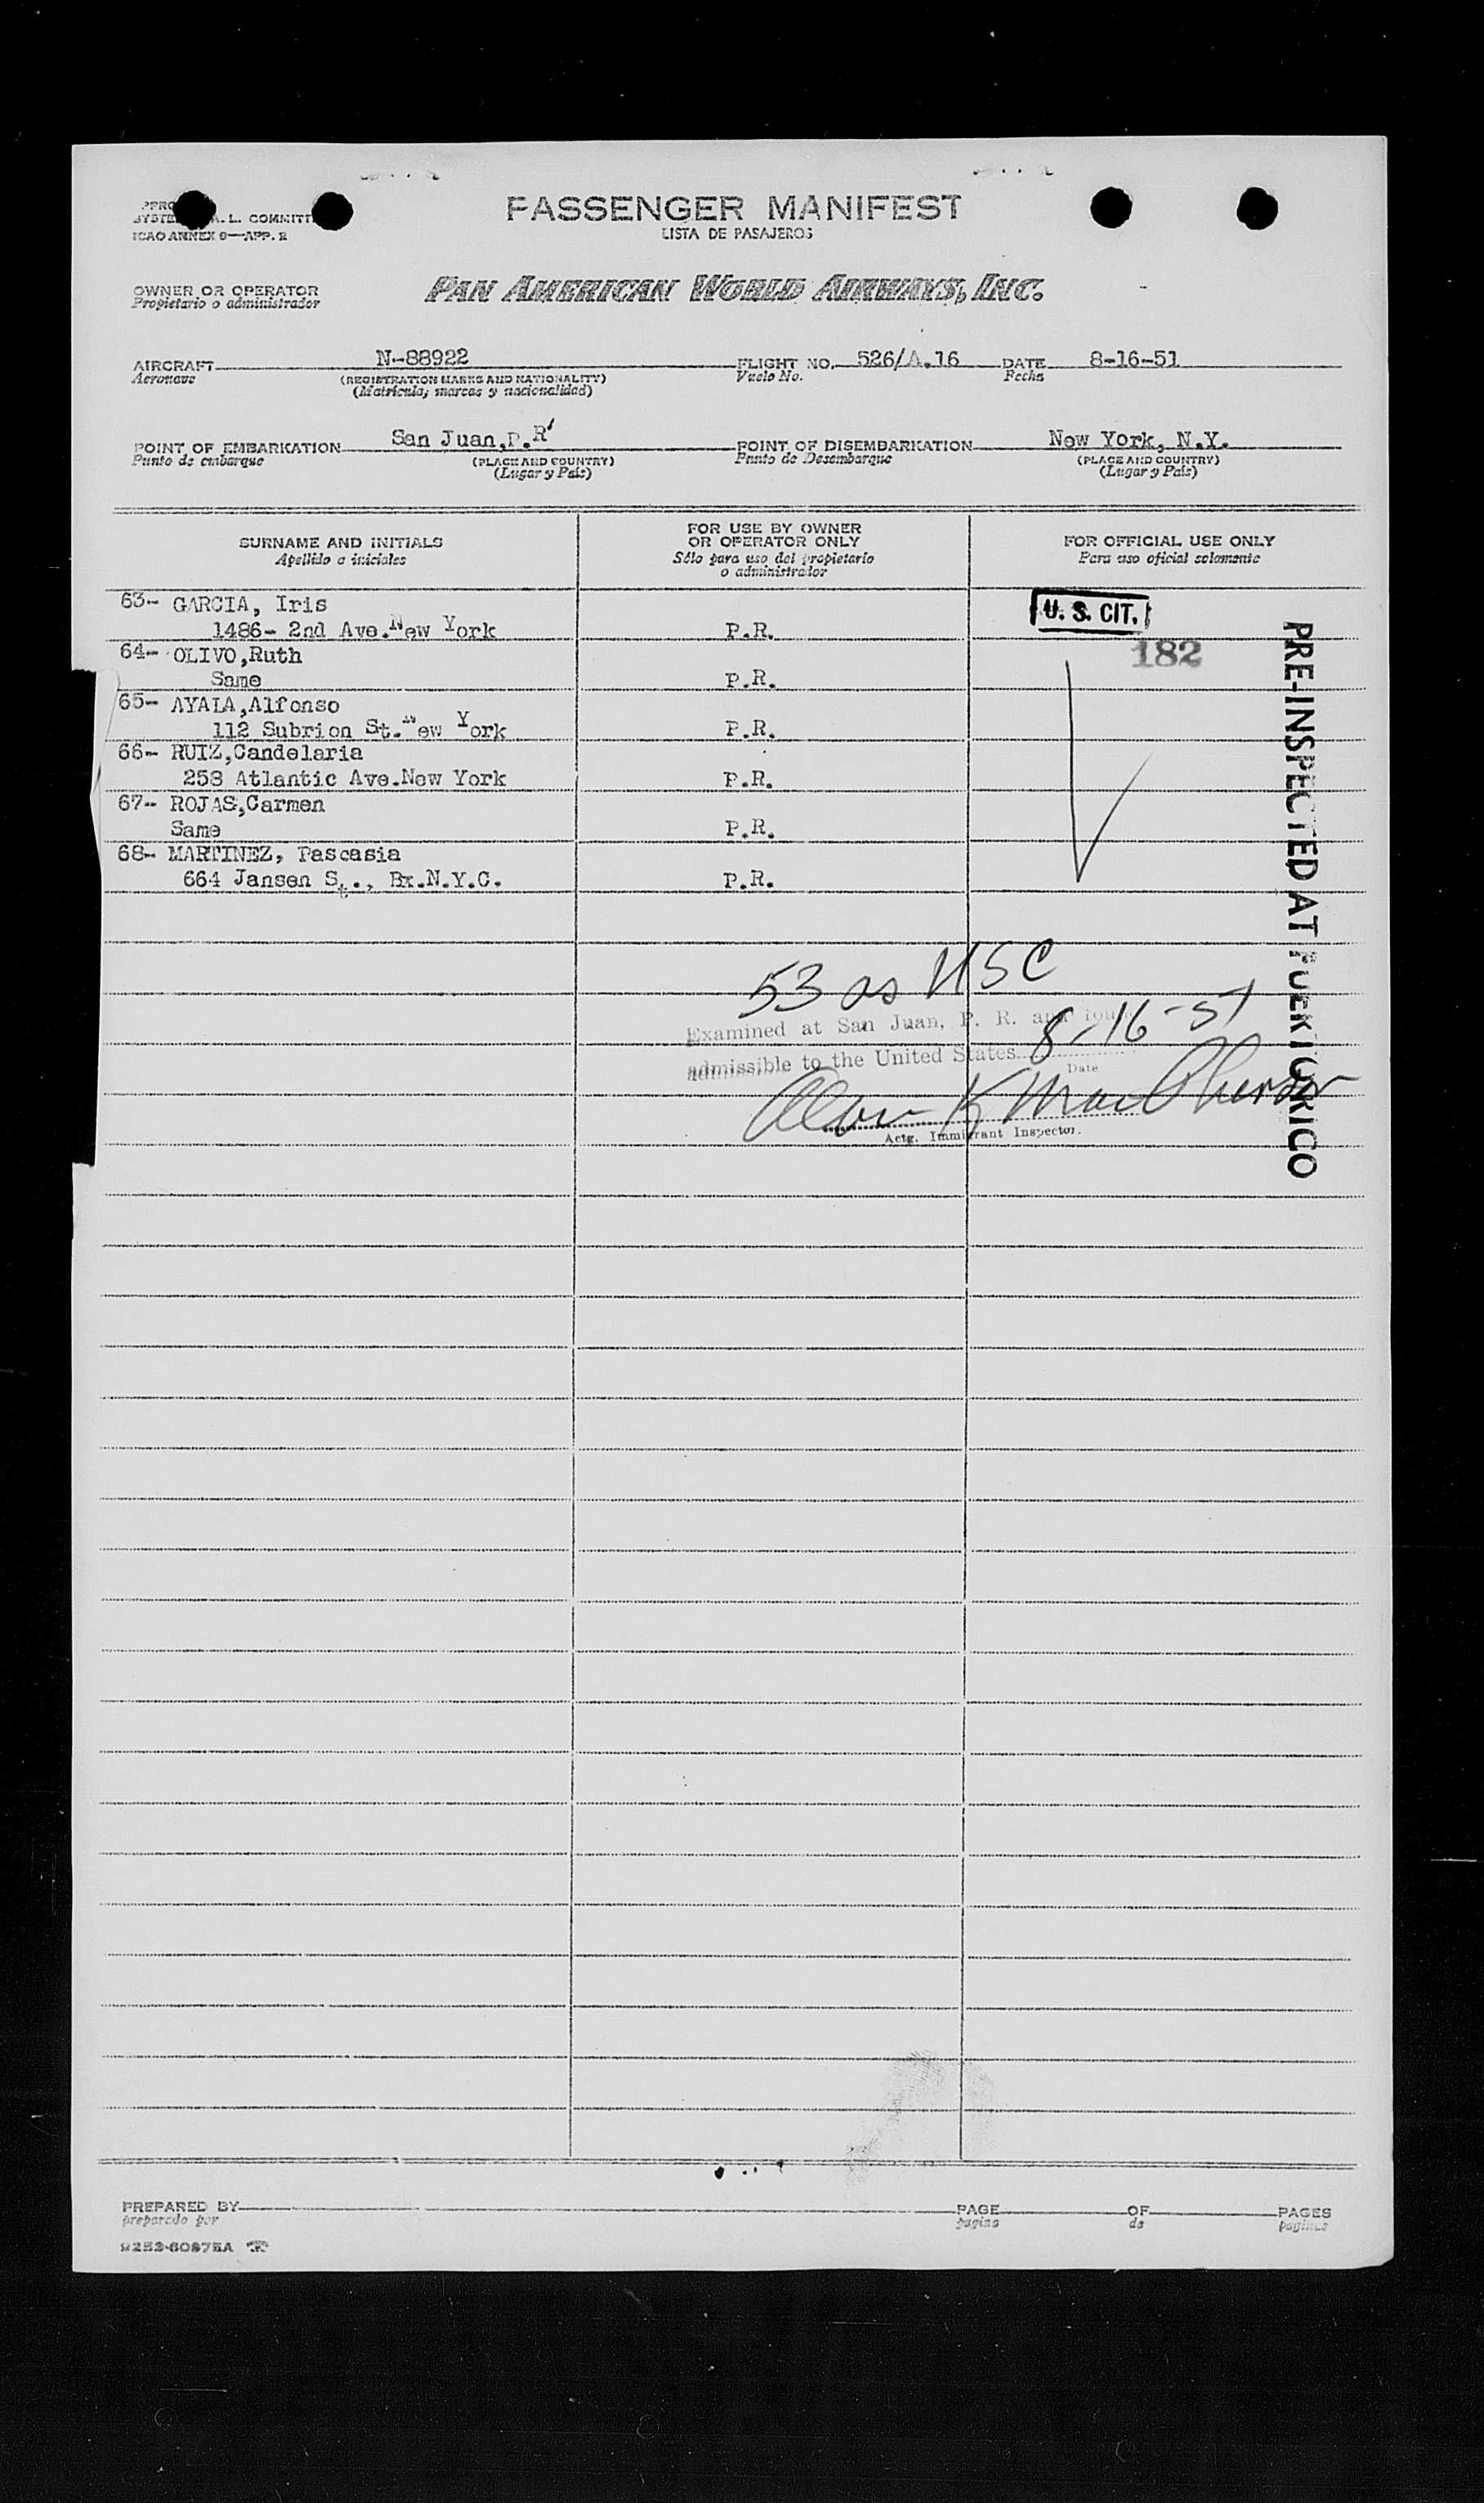 PASSENGER MANIFEST
LISTA DE PASAJEROS
A. L. COMMITT
ICAO ANNEX 9—APP. 2
OWNER OR OPERATOR
Propietario o administrador
PAN AMERICAN WORLD AIRWAYS, INC.
AIRCRAFT N-88922 FLIGHT NO. 526/A.16 DATE 8-16-51
Aeronave (REGISTRATION MARKS AND NATIONALITY) Vuelo No. Fecha
(Matrícula, marcas y nacionalidad)
POINT OF EMBARKATION San Juan,P.R POINT OF DISEMBARKATION New York, N.Y.
Punto de embarque (PLACE AND COUNTRY) Punto de Desembarque (PLACE AND COUNTRY)
(Lugar y País) (Lugar y País)
SURNAME AND INITIALS
Apellido e iniciales
FOR USE BY OWNER
OR OPERATOR ONLY
Sólo para uso del propietario
o administrador
FOR OFFICIAL USE ONLY
Para uso oficial solamente
63- GARCIA, Iris
1486- 2nd Ave.New York P.R.
U. S. CIT.
182
64- OLIVO,Ruth
Same P.R.
65- AYALA,Alfonso
112 Subrion St.New York P.R.
66- RUIZ,Candelaria
258 Atlantic Ave.New York P.R.
67- ROJAS,Carmen
Same P.R.
68- MARTINEZ, Pascasia
664 Jansen St., Bx.N.Y.C. P.R.
PRE-INSPECTED AT PUERTO RICO
53 as USC
Examined at San Juan, P. R. and found
admissible to the United States 8-16-51
Date
Alan K MacPherson
Actg. Immigrant Inspector.
PREPARED BY PAGE OF PAGES
preparado por pagina de paginas